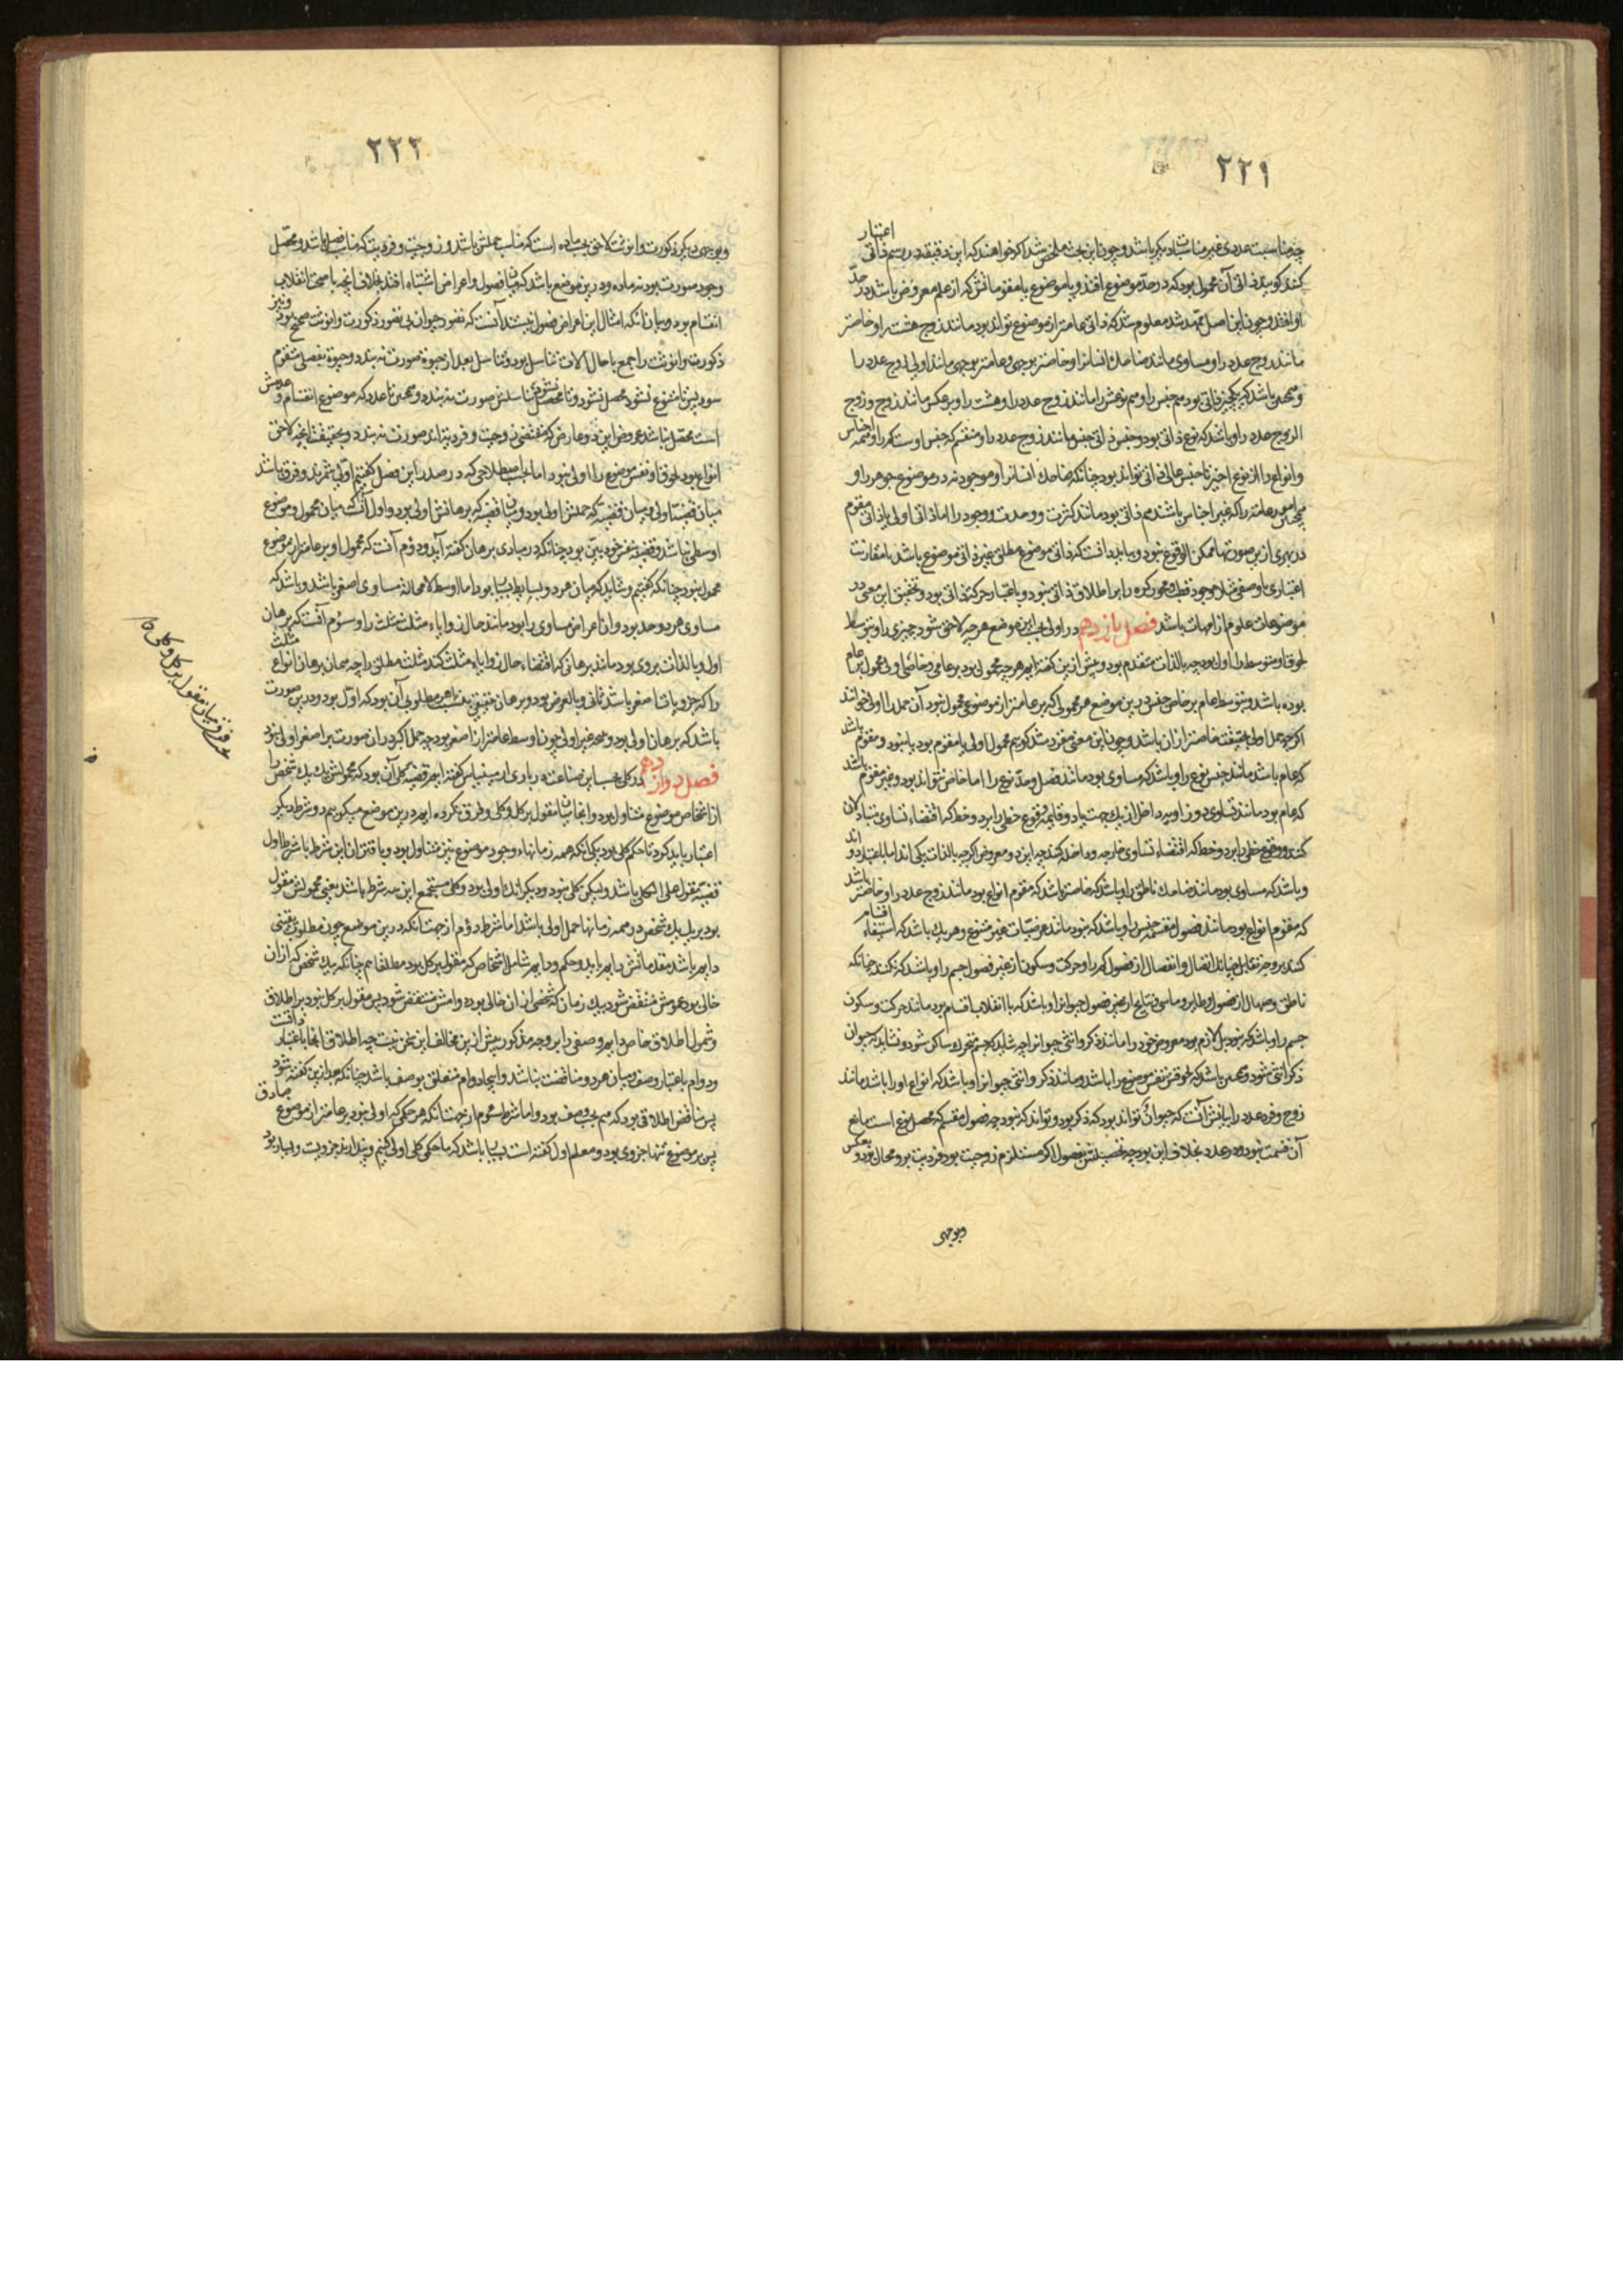 ٢٢١
اعتبار
چه مناسبت عددی غیر مناسبات دیگر باشد و چون این بحث ملخص شد اگر خواهند که این دقیقه در رسم ذاتی
کنند گویند ذاتی آن محمول بود که در حد موضوع افتد و یا موضوع یا مقوماتش که از علم معروض باشد در حد
او افتد و چون این اصل ممهد شد معلوم شد که ذاتی عامتر از موضوع تواند بود مانند زوج هشت را و خاصتر
مانند زوج عدد را و مساوی مانند ضاحك انسانرا و خاصتر بوجهی و عامتر بوجهی مانند اولی زوج عدد را
و همچنین باشد که یکچیز ذاتی بود هم جنس را و هم نوعش را مانند زوج عدد را و هشت را و برعکس مانند زوج و زوج
الزوج عدد را و باشد که نوع ذاتی بود و جنس ذاتی جنس مانند زوج عدد را و منقسم که جنس اوست کم را و همه اجناس
و انواع را از نوع اخیر تا جنس عالی ذاتی تواند بود چنانکه ضاحك انسانرا و موجود نه در موضوع جوهر را و
در بهری ازین صورتها ممکن الوقوع نبود و بباید دانست که ذاتی موضوع مطلق غیر ذاتی موضوع باشد با مقارنت
اعتباری یا وصفی مثلا وجود قطب و محور کره را بر اطلاق ذاتی نبود و باعتبار حرکت ذاتی بود و تحقیق این معنی در
موضوعات علوم از مهمات باشد فصل یازدهم در اولی بحسب این موضع هرچه لاحق شود چیزی را و بتوسط
لحوق او متوسط را اول بود چه بالذات متقدم بود و پیش ازین گفته ایم هرچه محمول بود بر عامی و خاصی اولی محمول بر عام
بوده باشد و بتوسط عام بر خاص پس درین موضع هر محمولی که بر عامتر از موضوع محمول نبود آن حمل را اولی خوانند
اگرچه حمل اولی بحقیقت خاصتر ازان باشد و چون این معنی مقرر شد گوییم محمول اولی یا مقوم بود یا نبود و مقوم باشد
که عام باشد مانند جنس نوع را و باشد که مساوی بود مانند فصل و حد نوع را اما خاص نتواند بود و غیر مقوم باشد
که عام بود مانند تساوی دو زاویه داخل از یك جهت با دو قایمه وقوع خطی را بر دو خط که اقتضاء تساوی متبادلان
کند و وقوع خطی را بر دو خط که اقتضاء تساوی خارجه و داخله کند چه این دو معروض اگرچه بالذات یکی اند اما باعتبار دو اند
و باشد که مساوی بود مانند ضاحك ناطق را و باشد که خاصتر باشد که مقوم انواع بود مانند زوج عدد را و خاصتر باشد
که مقوم انواع بود مانند فصول مقسمه جنس را و باشد که نبود مانند عرضیات غیر متنوع و هر یك باشد که استیفاء اقسام
کند بر وجه تقابل چنانکه اتصال و انفصال از فصول کم را و حرکت و سکون از غیر فصول جسم را و باشد که نکند چنانکه
ناطق و صهال از فصول و طایر و ماشی و سابح از غیر فصول حیوانرا و باشد که با انقلاب اقسام بود مانند حرکت و سکون
جسم را و باشد که نبود بل لازم بود معروض خود را مانند ذکر و انثی حیوانرا چه شاید که جسم متحرك ساکن شود و نشاید که حیوان
ذکر انثی شود و همچنین باشد که لحوقش نفس موضوع را باشد مانند ذکر و انثی حیوانرا و باشد که انواع او را باشد مانند
زوج و فرد عدد را بیانش آنست که حیوان تواند بود که ذکر بود و تواند که نبود چه فصول مقسم که محصل نوع است مانع
آن قسمت نبود و در عدد بخلاف این بود چه تحصیلش بفصول اگر مستلزم زوجیت بود فردیت برو محال بود و بعکس
وبوجهی
٢٢٢
و بوجهی دیگر ذکورت و انوثت لاحق بحسب ماده است که مناسب جنس باشد و زوجیت و فردیت که مناسب فصل باشد و محصل
وجود صورت بود نه ماده و درین موضع باشد که میان فصول و اعراض اشتباه افتد بخلاف آنچه با صحت انقلاب
انقسام بود و بیان آنکه امثال این اعراض فصول نیستند آنست که تصور حیوان بی تصور ذکورت و انوثت صحیح بود و نیز
ذکورت و انوثت راجع با حال آلات تناسل بود و تناسل بعد از حیوة صورت نه بندد و حیوة بفصلی متقوم
شود پس تا متنوع نشود محصل نشود و تا محصل نشود تناسلش صورت نه بندد و همچنین تا عدد که موضوع انقسام و عدمش
است محصل نباشد عروض این دو عارض که مقتضی زوجیت و فردیت اند صورت نه بندد و بحقیقت آنچه لاحق
انواع بود لحوق او نفس موضوع را اولی نبود اما بحسب اصطلاحی که در صدر این فصل گفتیم اولی شمرند و فرق باشد
میان قضیه اولی و میان قضیه که حملش اولی بود و میان قضیه که برهانش اولی بود و اول آنست که میان محمول و موضوع
اوسطی نباشد و قضیه بنفس خود بین بود چنانکه در مبادی برهان گفته آید و دوم آنست که محمول او بر عامتر از موضوع
محمول نبود چنانکه گفتیم و شاید که میان هر دو وسایط بسیار بود اما اوسط لا محاله مساوی اصغر باشد و باشد که
مساوی هر دو حد بود و آن اعراض مساوی را بود مانند حال زوایاء مثلث مثلث را و سوم آنست که برهان
اول و بالذات بروی بود مانند برهانی که اقتضاء حال زوایاء مثلث کند مثلث مطلق را چه همان برهان انواع مثلث
را که جزویات اصغر باشد ثانی و بالعرض بود و برهان حقیقی بنسبت با هر مطلوبی آن بود که اول بود و درین صورت
باشد که برهان اولی بود و نتیجه غیر اولی چون اوسط عامتر از اصغر بود چه حمل اکبر در ان صورت بر اصغر اولی نبود
فصل دوازدهم در کلی بحسب این صناعت در بارى ارمینیاس گفته ایم قضیه کلی آن بود که محمولش یك یك شخص را
از اشخاص موضوع متناول بود و آنجا میان مقول بر کل و کلی فرق نکرده ایم درین موضع میگوییم دو شرط دیگر
اعتبار باید کرد تا حکم کلی بود یکی آنکه همه زمانهاء وجود موضوع نیز متناول بود و باقتران این شرط با شرط اول
قضیه مقول علی الکل باشد و لیکن کلی نبود و دیگر آنك اولی بود و کلی مستجمع این سه شرط باشد یعنی محمولش مقول
بود بر یك یك شخص در همه زمانها حمل اولی باشد اما شرط دوم از جهت آنکه درین موضع چون مطلوب یقینی
دایم باشد مقدماتش دایم باید و حکم دایم شامل اشخاص که مقول بر کل بود مطلقا هم چنانکه بیك شخص که ازان
خالی بود عمومش منتقض شود بیك زمان که شخصی از ان خالی بود دوامش منتقض شود پس مقول بر کل نبود بر اطلاق
و شمول اطلاق خاص دایم وصفی را بر وجه مذکور پیش ازین مخالف این سخن نیست چه اطلاق آنجا باعتبار ذاتست
و دوام باعتبار وصف و میان هر دو مناقضت نباشد و اینجا دوام متعلق بوصف باشد چنانکه بعد ازین گفته شود
پس مناقض اطلاقی بود که هم بحسب وصف بود و اما شرط سوم از جهت آنکه هر حکمی که اولی نبود بر عامتر از موضوع صادق
پس بر موضوع تنها جزوی بود و معلم اول گفته است بسیار باشد که ما حکمی کلی اولی کنیم و پندارند جزویست و بسیار بود
فرق میان مقول بر کل و کلی